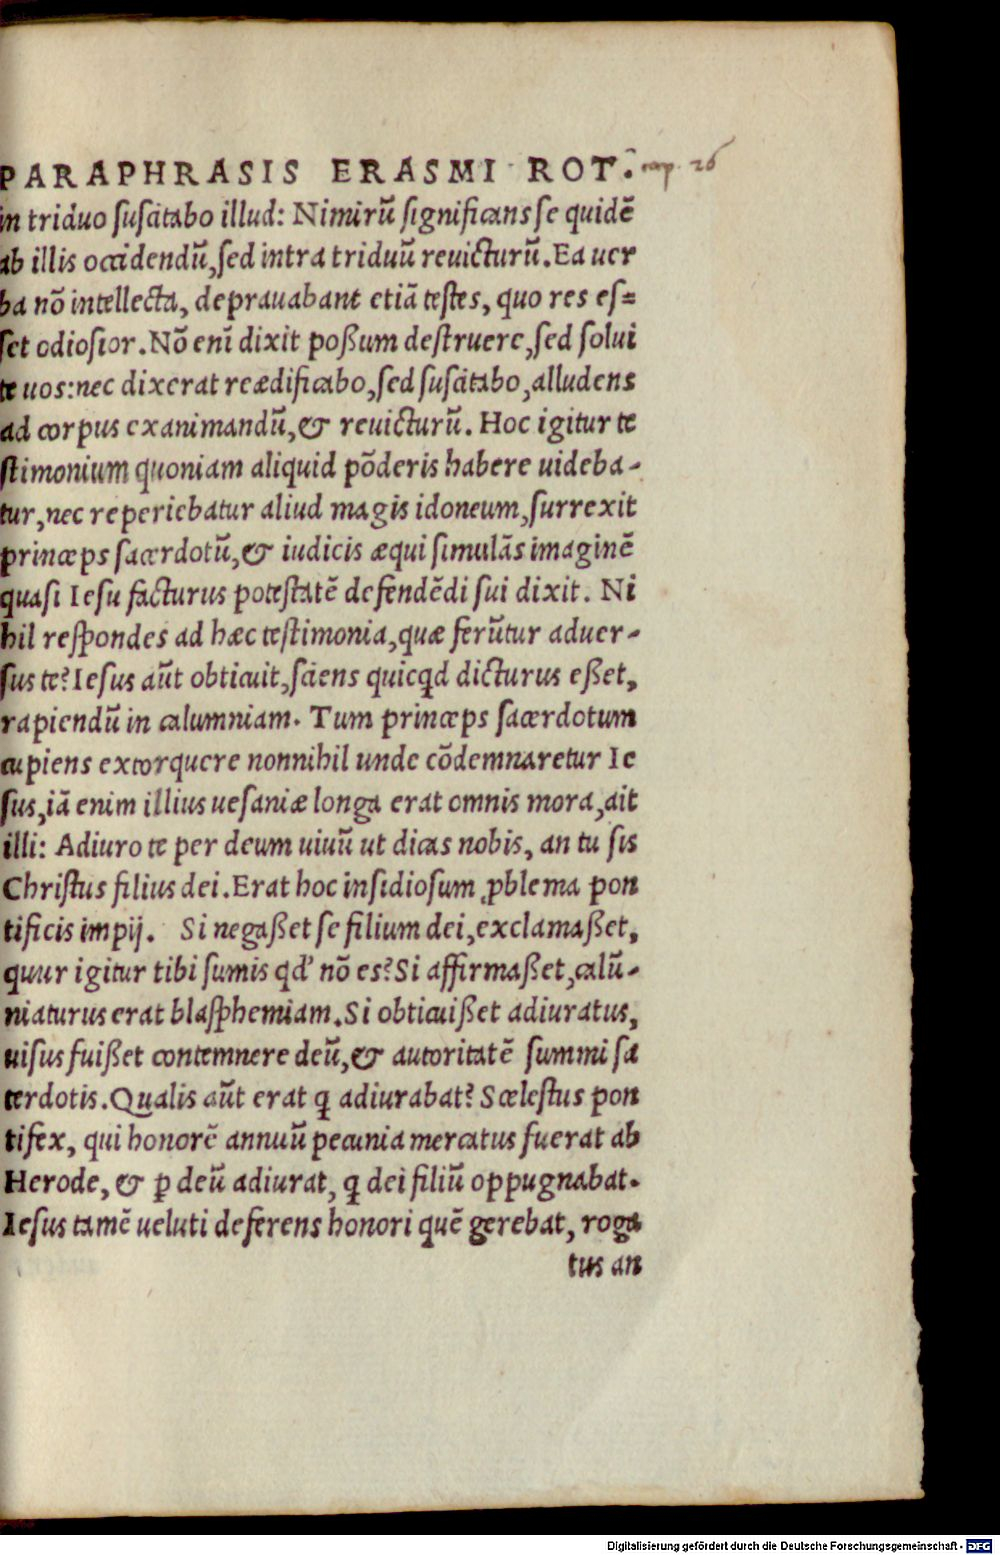 PARAPHRASIS ERASMI ROT. cap. 26
in triduo suscitabo illud: Nimirũ significans se quidẽ
ab illis occidendũ, sed intra triduũ reuicturũ. Ea uer
ba nõ intellecta, deprauabant etiã testes, quo res es=
set odiosior. Nõ enĩ dixit poßum destruere, sed solui
te uos: nec dixerat reædificabo, sed suscitabo, alludens
ad corpus exanimandũ, & reuicturũ. Hoc igitur te
stimonium quoniam aliquid põderis habere uideba-
tur, nec reperiebatur aliud magis idoneum, surrexit
princeps sacerdotũ, & iudicis æqui simulãs imaginẽ
quasi Iesu facturus potestatẽ defendẽdi sui dixit. Ni
hil respondes ad hæc testimonia, quæ ferũtur aduer-
sus te? Iesus aũt obticuit, sciens quicꝗd dicturus eßet,
rapiendũ in calumniam. Tum princeps sacerdotum
cupiens extorquere nonnihil unde cõdemnaretur Ie
sus, iã enim illius uesaniæ longa erat omnis mora, ait
illi: Adiuro te per deum uiuũ ut dicas nobis, an tu sis
Christus filius dei. Erat hoc insidiosum ꝓblema pon
tificis impij. Si negaßet se filium dei, exclamaßet,
quur igitur tibi sumis qd' nõ es? Si affirmaßet, calũ-
niaturus erat blasphemiam. Si obticuißet adiuratus,
uisus fuißet contemnere deũ, & autoritatẽ summi sa
cerdotis. Qualis aũt erat ꝗ adiurabat? Scelestus pon
tifex, qui honorẽ annuũ pecunia mercatus fuerat ab
Herode, & ꝑ deũ adiurat, ꝗ dei filiũ oppugnabat.
Iesus tamẽ ueluti deferens honori quẽ gerebat, roga
tus an
Digitalisierung gefördert durch die Deutsche Forschungsgemeinschaft - DFG